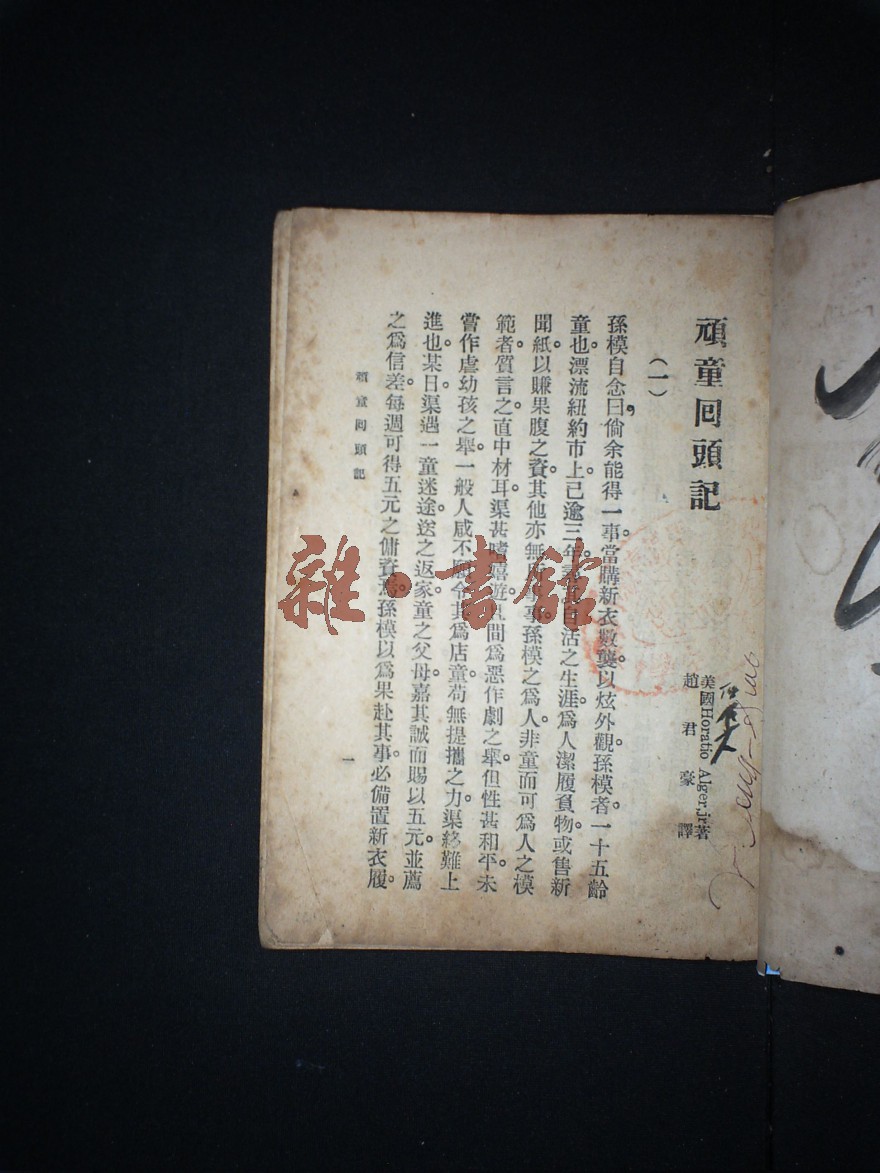 頑童回頭記
美國Horatio Alger.Jr著
趙君豪譯
(一)
孫模自念曰，倘余能得一事。當購新衣數襲。以炫外觀。孫模者。一十五齡
童也。漂流紐約市上。已逾三年。活之生涯。爲人潔履負物。或售新
聞紙以賺果腹之資。其他亦無事。孫模之爲人。非童而可爲人之模
範者。質言之。直中材耳。渠甚嗜嬉遊。間爲惡作劇之舉。但性甚和平。未
嘗作虐幼孩之舉。一般人咸不願令其爲店童。苟無提攜之力。渠終難上
進也。某日。渠遇一童迷途。送之返家。童之父母嘉其誠而賜以五元。並薦
之爲信差。每週可得五元之傭資焉。孫模以爲果赴其事。必備置新衣履。
頑童回頭記
一
雜·書館